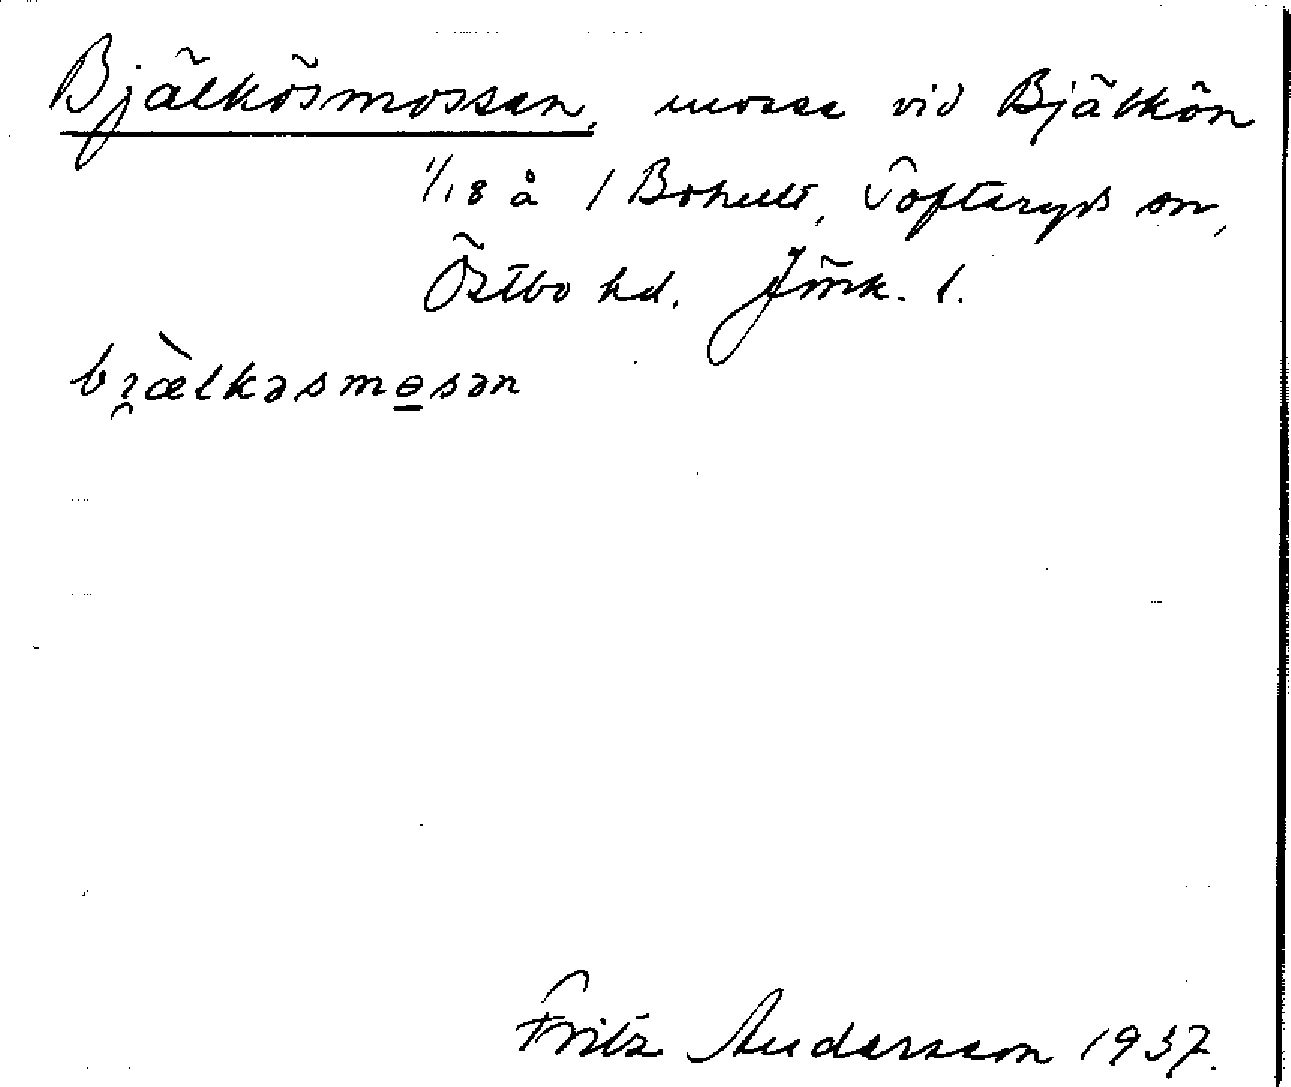 Bjälkösmossan, mosse vid Bjälkön
1/18 å 1 Bohult, Tofteryds sn,
Östbo hd. Jmk. l.
bi̯æ̀lkəsmɵ̱sən
Fritz Andersson 1937.